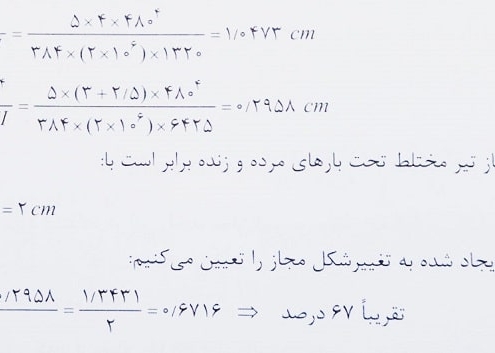 = ۵×۴×۴۸۰^۴ / ۳۸۴×(۲×۱۰^۶)×۱۳۲۰ = ۱/۰۴۷۳ cm
I = ۵×(۳+۲/۵)×۴۸۰^۴ / ۳۸۴×(۲×۱۰^۶)×۶۴۲۵ = ۰/۲۹۵۸ cm
از تیر مختلط تحت بارهای مرده و زنده برابر است با:
= ۲ cm
یجاد شده به تغییرشکل مجاز را تعیین می‌کنیم:
۰/۲۹۵۸ = ۱/۳۴۳۱ / ۲ = ۰/۶۷۱۶ ⇒ تقریباً ۶۷ درصد